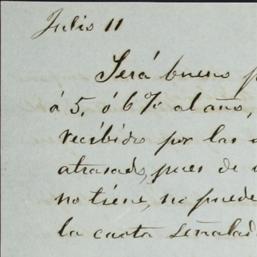 Julio 11
Será bueno p
á 5, ó 6% al año,
recibido por las
atrasado, pues de
no tiene, no puede
la cuota señalad